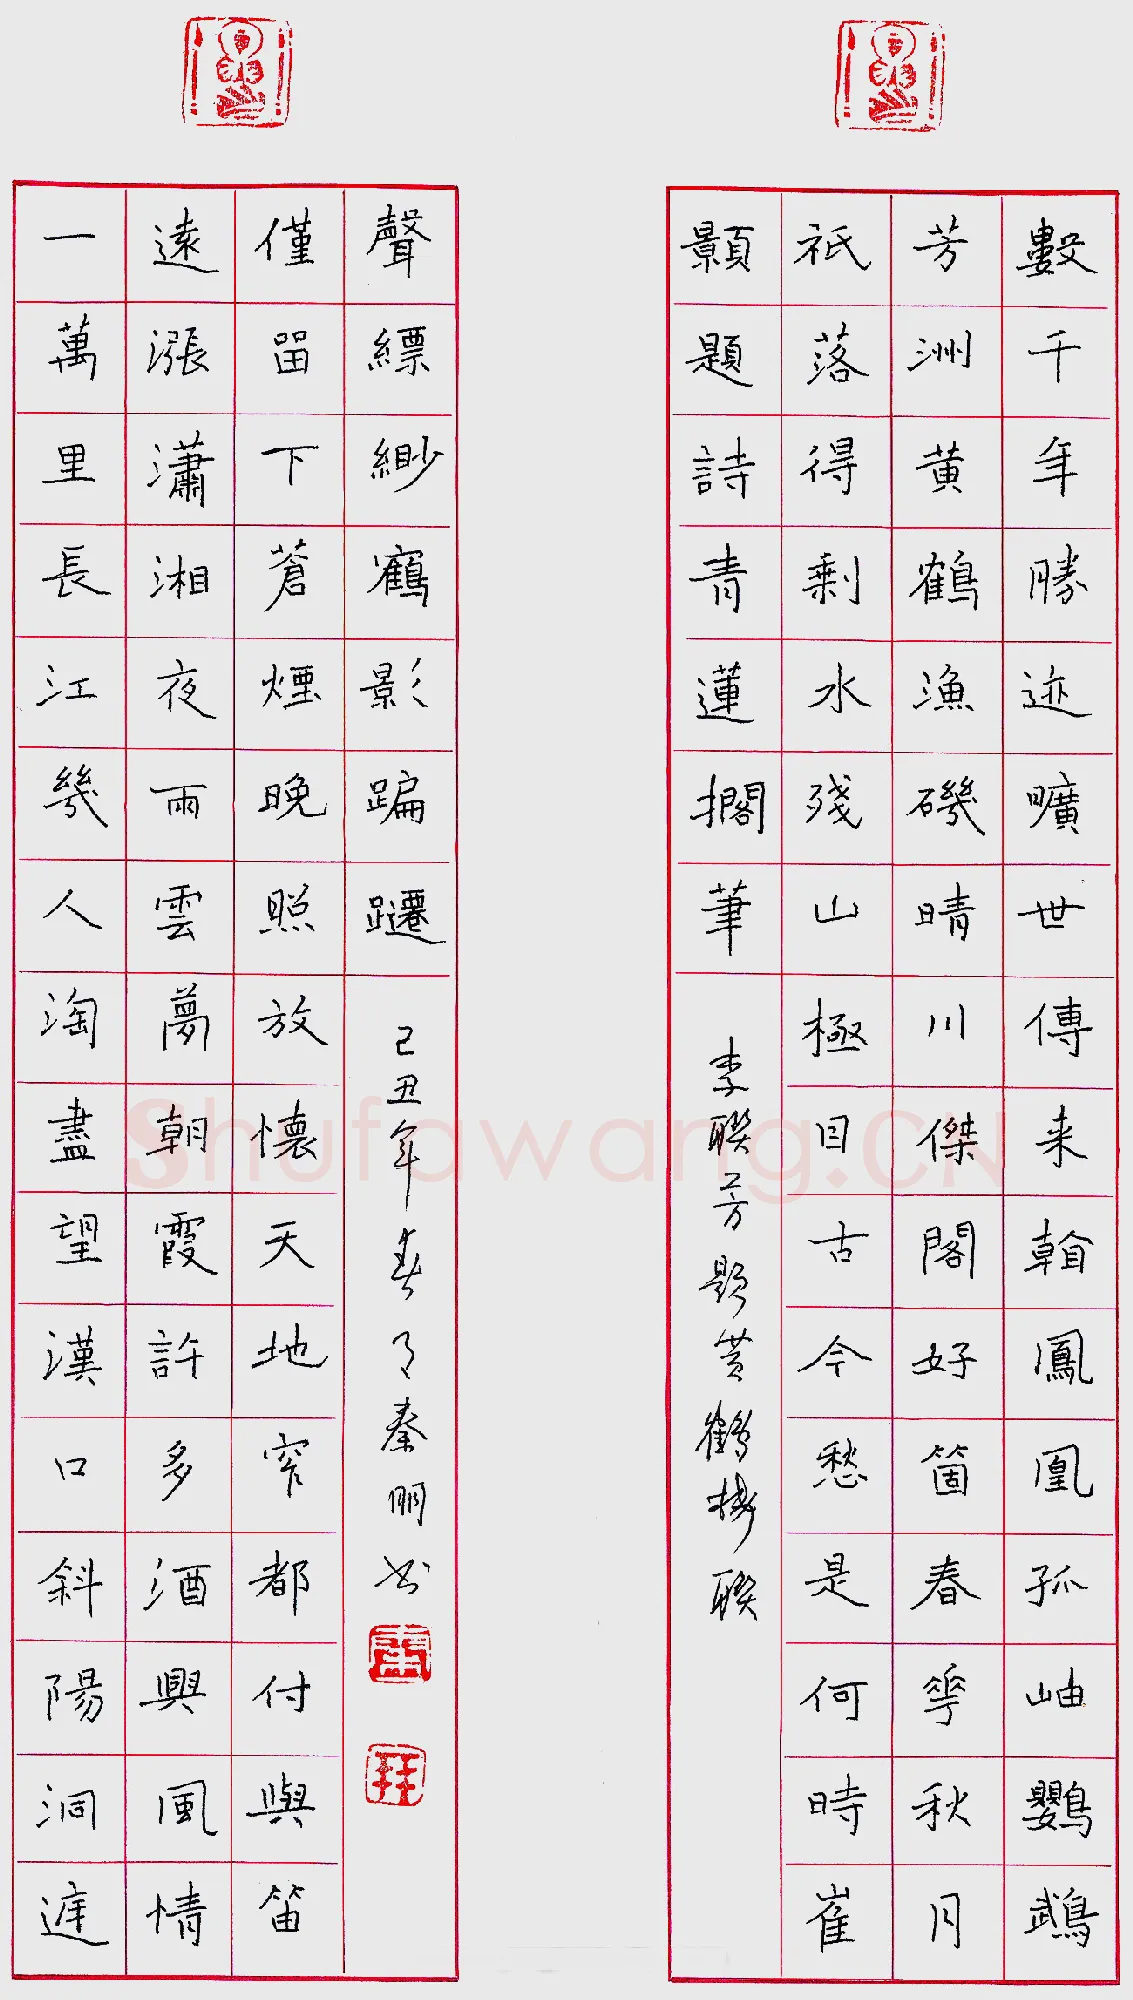 數千年勝迹曠世傳来看鳳凰孤岫鸚鵡
芳洲黄鶴漁磯晴川傑閣好箇春花秋月
祇落得剩水殘山極目古今愁是何時崔
顥題詩青蓮擱筆
李联芳题黄鹤楼联
一萬里長江幾人淘盡望漢口斜陽洞庭
遠漲瀟湘夜雨雲夢朝霞許多酒興風情
僅留下蒼煙晚照放懷天地窄都付與笛
聲縹緲鶴影蹁躚
己丑年春月秦明书
Shufawang.CN